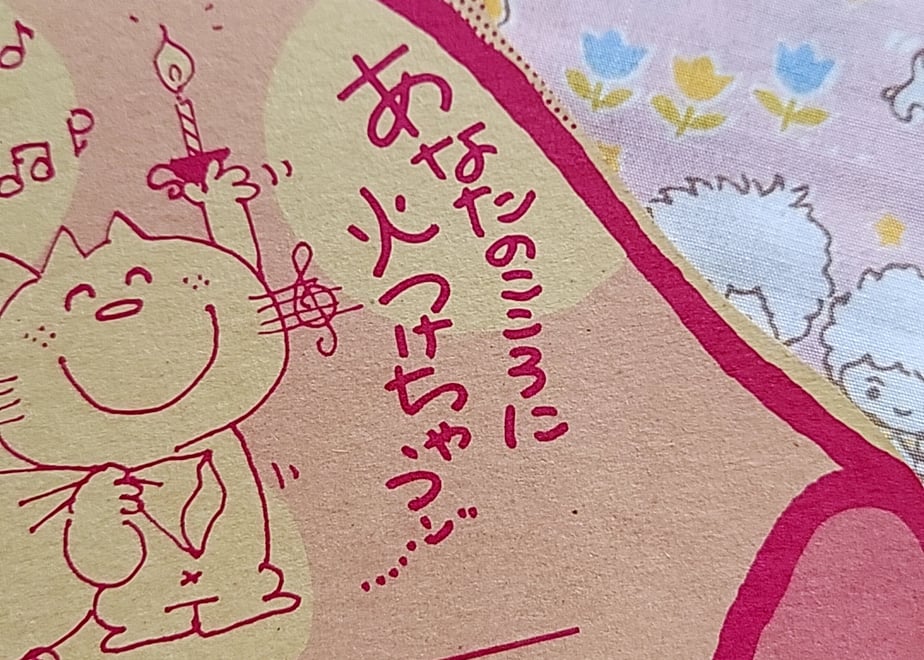 あなたのこころに
火つけちゃうぅ……